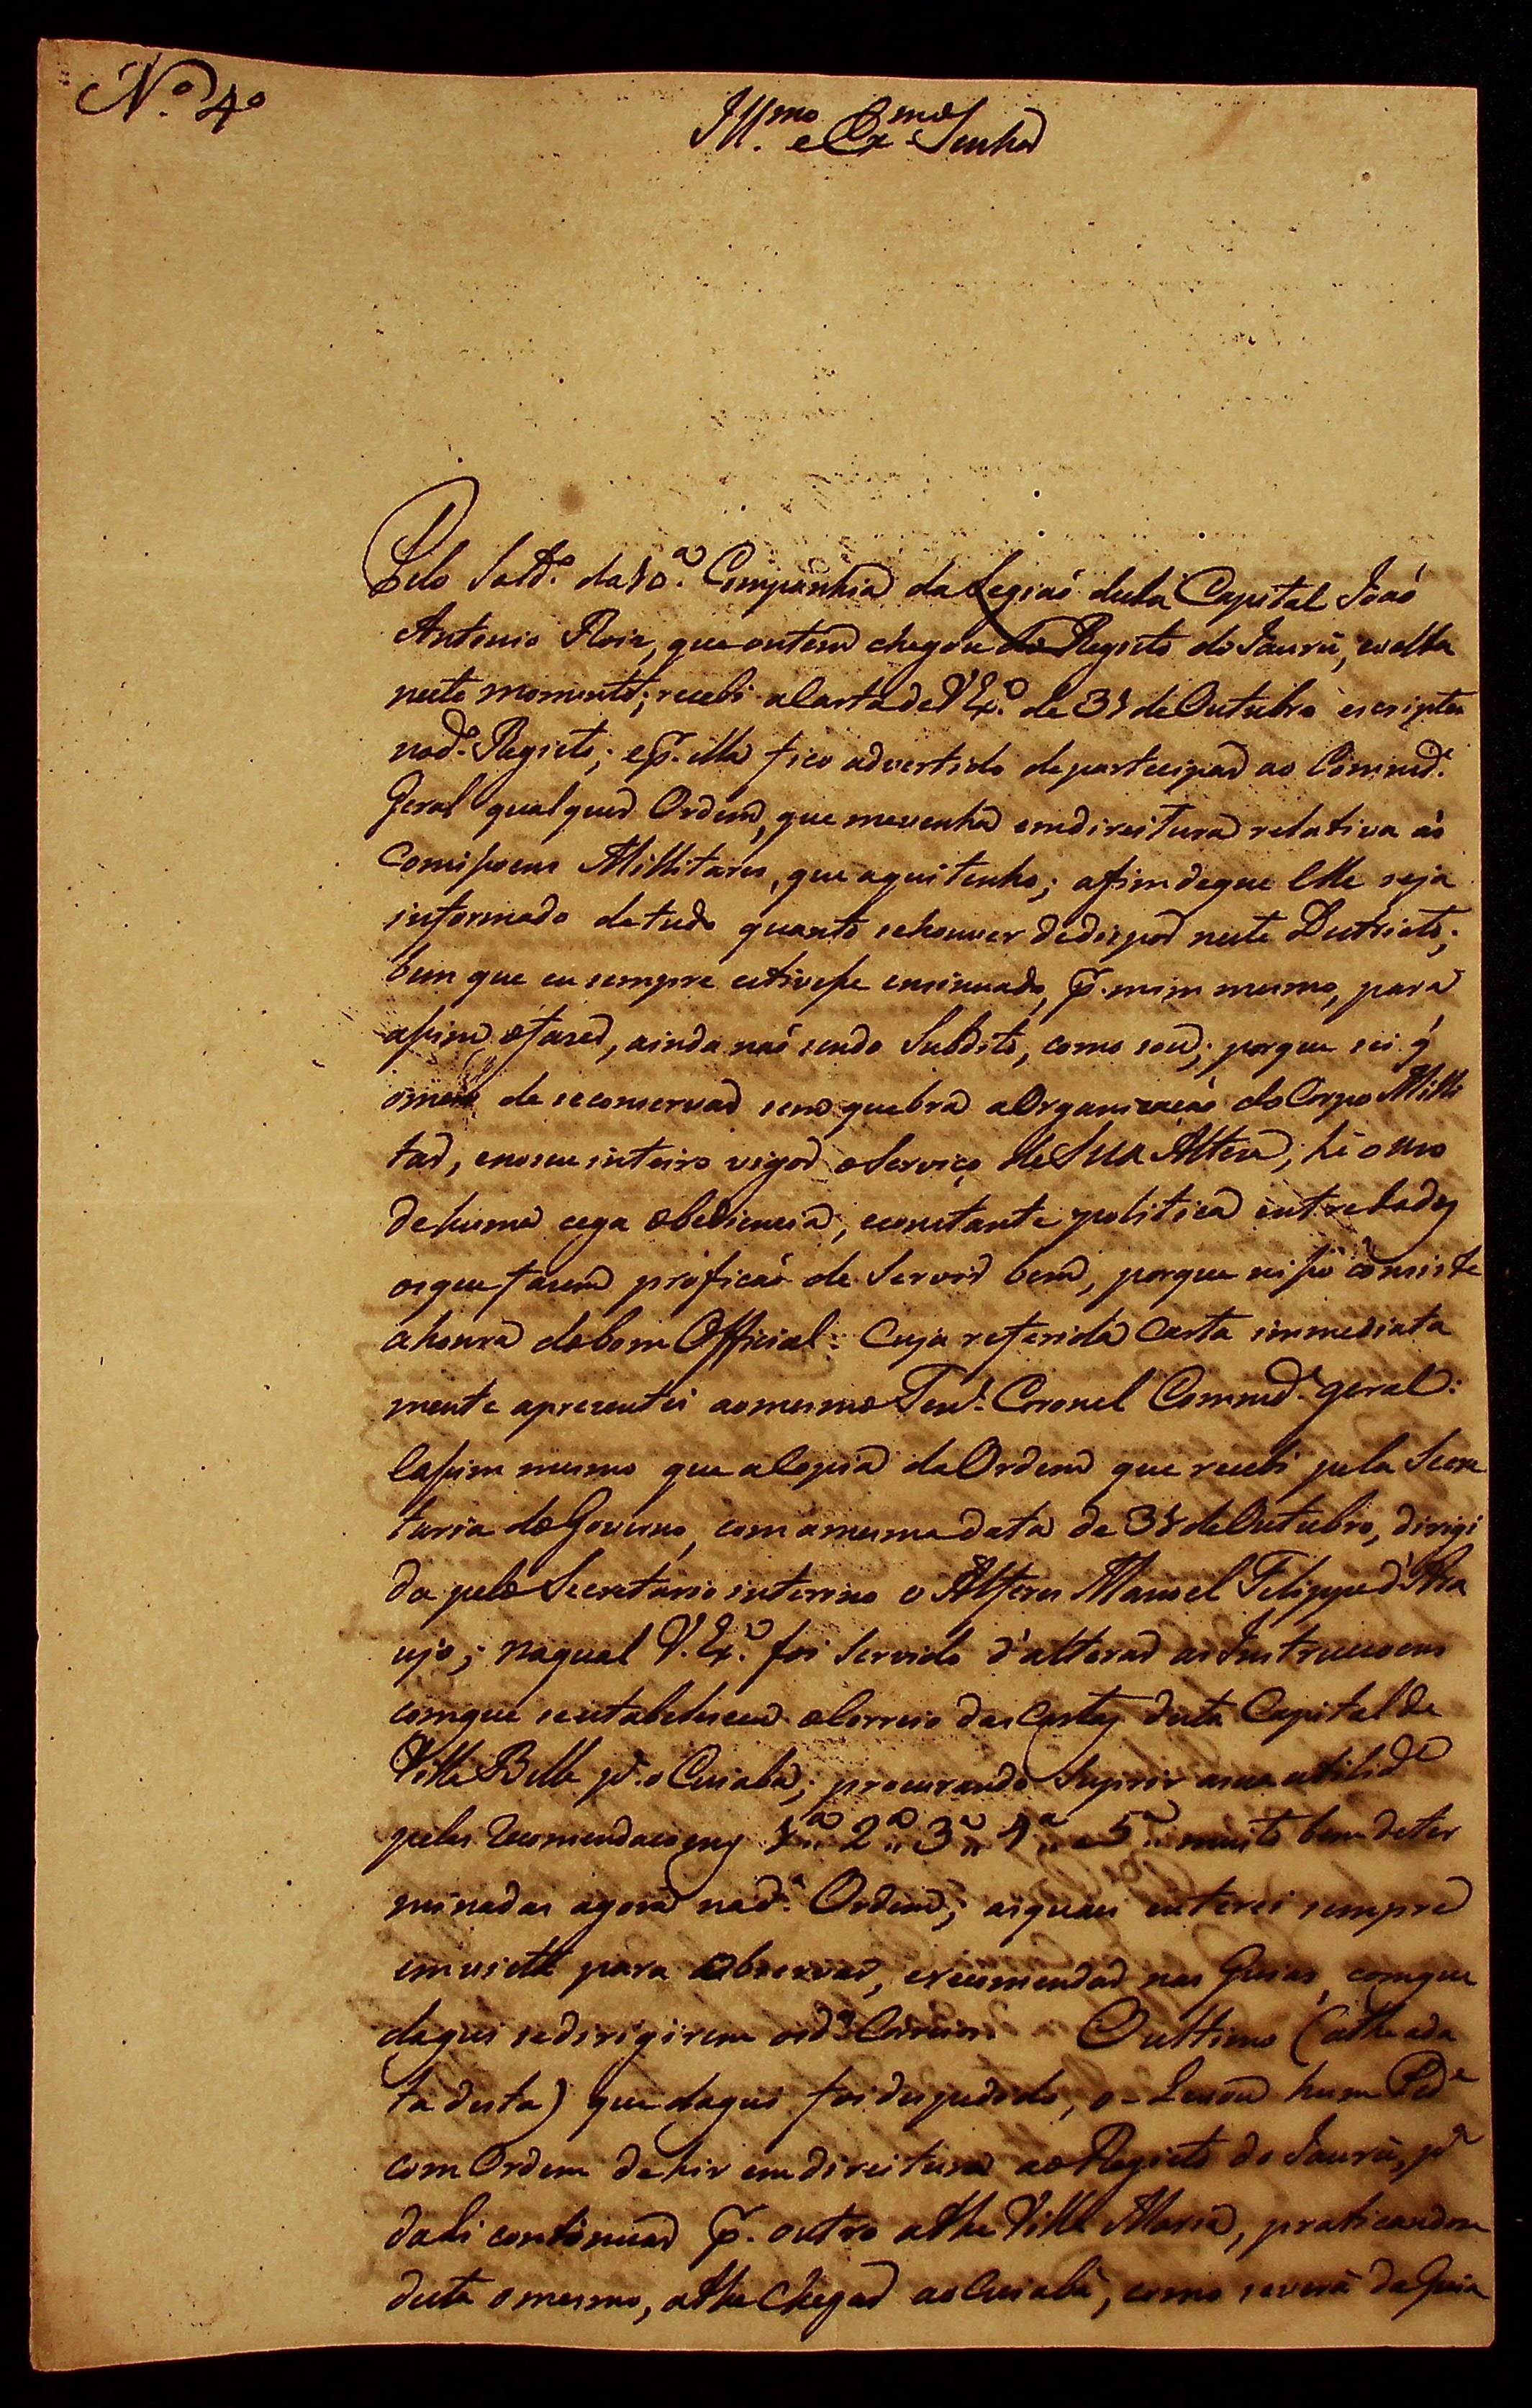 N.º 4º
Ill.mo e Ex.mo Senhor
Pelo Sold.º da 10.ª Companhia da Legiaõ desta Capital Joaõ
Antonio Roiz, que ontem chegou do Registo do Jaurú, e volta
neste momento; recebi a Carta de V.Ex.ª de 31 de Outubro escripta
no d.º Registo; e p.r ella fico advertido de participar ao Commd.e
Geral qualquer Ordem, que me venha em direitura relativa ás
Comissoens Millitares, que aqui tenho; afim de que Elle seja
informado de tudo quanto se houver de dispor neste Destricto;
bem que eu sempre estivesse ensinuado, p.r mim mesmo, para
assim o fazer, ainda naõ sendo Subdito, como sou; porque sei q̃
o meio de se conservar sem quebra a Organizaçaõ do Corpo Milli
tar, e no seu inteiro vigor o Serviço de Sua Alteza, hé o uso
de huma cega obediencia, e constante politica entre todos
os que fazem proficaõ de Servir bem, porque nisso consiste
a honra do bom Official: Cuja referida Carta immediata
mente aprezentei ao mesmo Ten.e Coronel Commd.e geral:
E assim mesmo que a Copia da Ordem que recebi pela Secre
taria do Governo, com a mesma data de 31 de Outubro, dirigi
da pelo Secretario interino o Alferes Manoel Felippe d'Ara
ujo; na qual V.Ex.ª foi Servido d'alterar as Instrucçoens
com que se estabeleceu o Correio das Cartas desta Capital de
Villa Bella p.ª o Cuiabá; procurando Suprir a sua utilid.e
pelas Recomendaçoens 1.ª 2.ª 3.ª 4.ª e 5.ª muito bem deter
minadas agora na d.ª Ordem; as quaes eu terei sempre
em vista para observar, e recomendar nas Guias, com que
daqui se dirigirem os d.os Correios. O ultimo (athe a da
ta desta) que daqui foi despedido, o Levou hum Ped.e
com Ordem de hir em direitura ao Registo do Jaurú, p.ª
dali continuar p.r outro athe Villa Maria, praticandose
desta o mesmo, athe chegar ao Cuiabá, como se verá da Guia